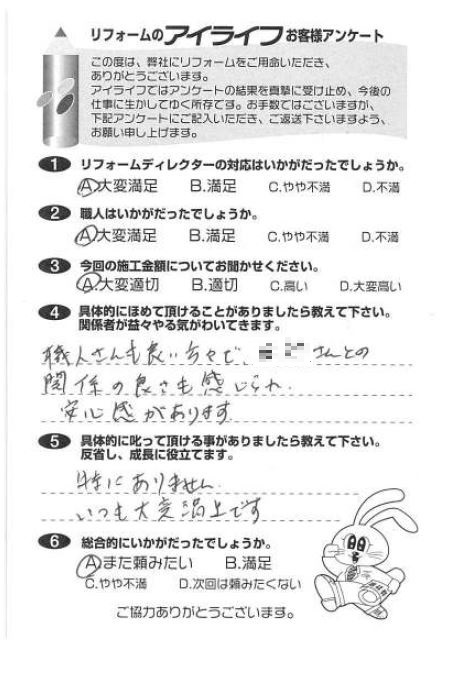 リフォームのアイライフお客様アンケート
この度は、弊社にリフォームをご用命いただき、
ありがとうございます。
アイライフではアンケートの結果を真摯に受け止め、今後の
仕事に生かしてゆく所存です。お手数ではございますが、
下記アンケートにご記入いただき、ご返送下さいますよう、
お願い申し上げます。
1 リフォームディレクターの対応はいかがだったでしょうか。
A.大変満足 B.満足 C.やや不満 D.不満
2 職人はいかがだったでしょうか。
A.大変満足 B.満足 C.やや不満 D.不満
3 今回の施工金額についてお聞かせください。
A.大変適切 B.適切 C.高い D.大変高い
4 具体的にほめて頂けることがありましたら教えて下さい。
関係者が益々やる気がわいてきます。
職人さんも良い方々で、 さんとの
関係の良さも感じられ
安心感があります
5 具体的に叱って頂ける事がありましたら教えて下さい。
反省し、成長に役立てます。
特にありません
いつも大変満足です
6 総合的にいかがだったでしょうか。
A.また頼みたい B.満足
C.やや不満 D.次回は頼みたくない
ご協力ありがとうございます。